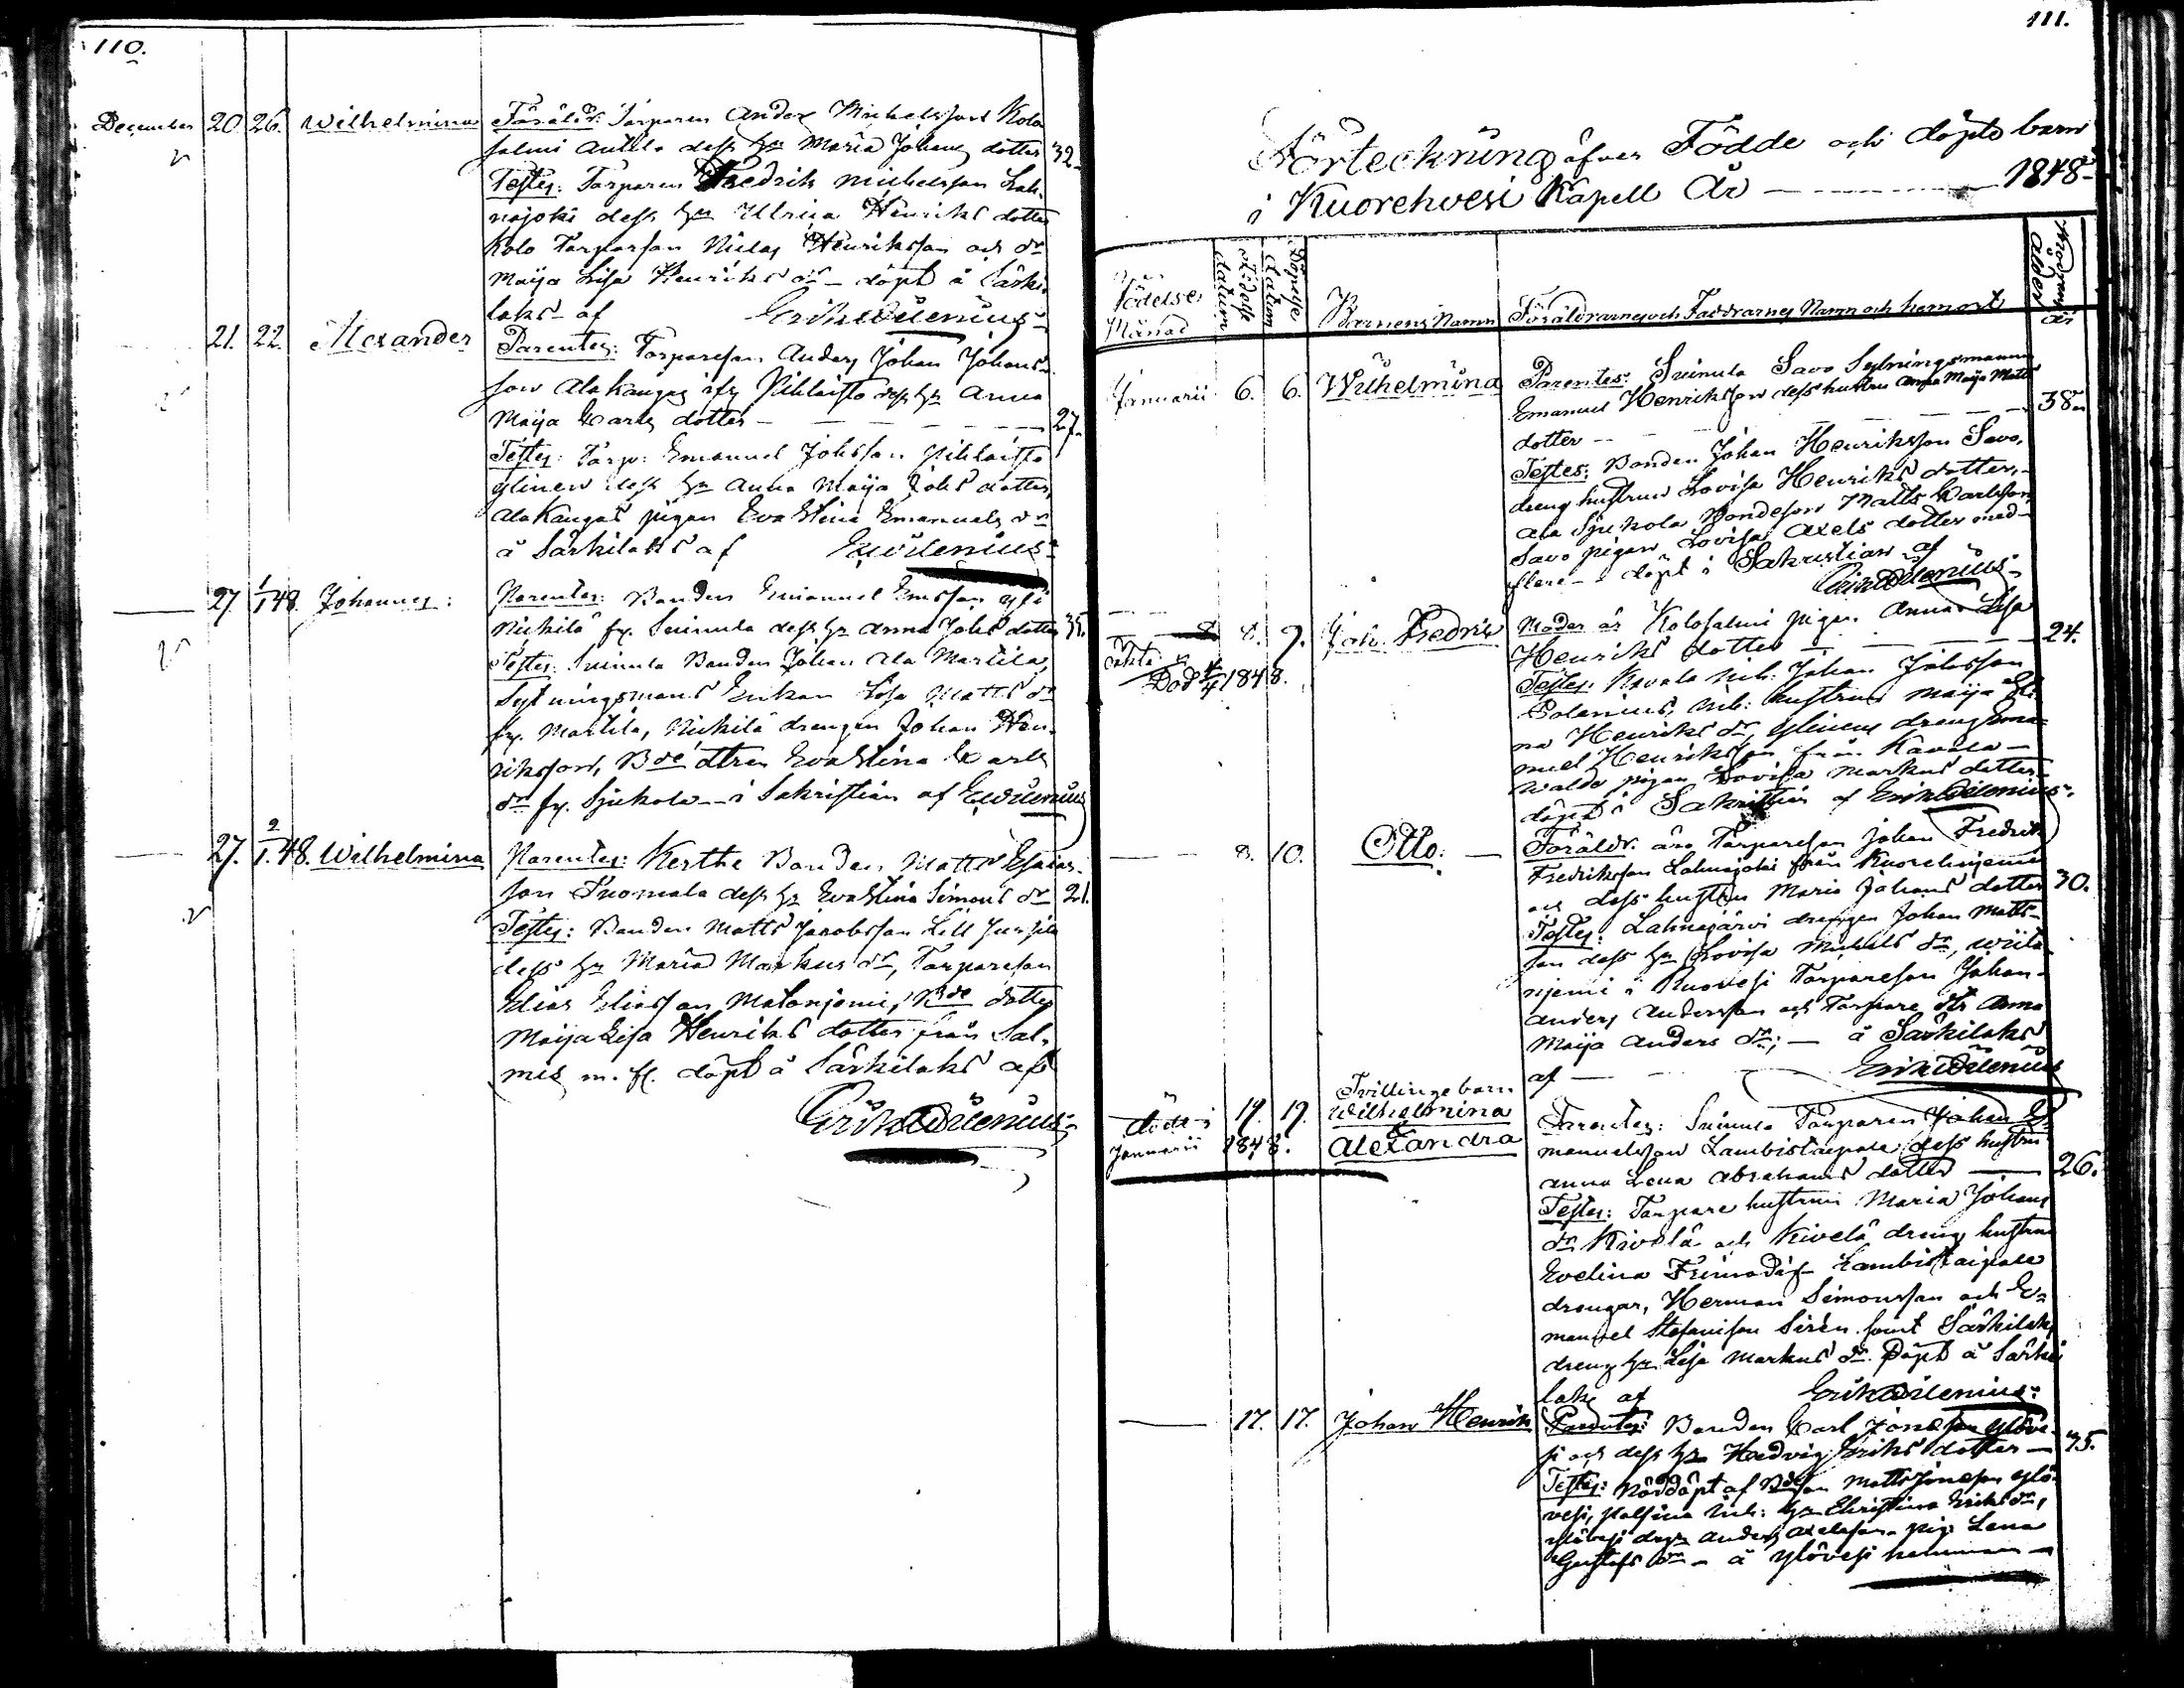 110.
December 20. 26. Wilhelmina Föräldr: Torparen Anders Michelsson Kolo
salmi Anttila dess hu Maria Johans dotter 32
Testes: Torparen Fredrik Michelsson Lah-
najoki dess hu Ulrica Henriks dotter
Kolo Torparson Niclas Henriksson och dr
Maija Lisa Henriks dr - döpt å Särki-
laks - af Erik Wilenius
21. 22. Alexander Parentes: Torpareson Anders Johan Johans-
son Alakangas afs Pihlaisto dess hu Anna
Maija Carls dotter - 27.
Testes: Torp: Emanuel Johsson Pihlaisto
ylinen dess hu Anna Maija Johs dotter,
Alakangas pigan Eva Stina Emanuels dr
å Särkilaks af E. Wilenius
27 1/1 48. Johannes: Parentes: Bonden Emanuel Emsson yli
Nickilä fr. Suinula dess hu Anna Johs dotter 35.
Testes: Suinula Bonden Johan Ala Martila,
Sytningsmans Enkan Lisa Matts dr
fr. Martila, Nickilä drengen Johan Hen-
riksson, Bde dtren Eva Stina Carls
dr fr. Sjukola - i Sakristian af E. Wilenius
27. 2/1. 48. Wilhelmina Parentes: Kertte Bonden Matts Esaias-
son Tuomala dess hu Eva Stina Simons dr 21.
Testes: Bonden Matts Jacobsson Lill Junsila
dess hu Maria Markus dr, Torpareson
Elias Eliasson Matonjemi, Bde dotter
Maija Lisa Henriks dotter från Sal-
mis m. fl. döpt å Särkilaks af
Erik Wilenius
111.
Förteckning öfver Födde och döpte barn
i Kuorehvesi Kapell År 1848
Födelse Månad
Födelse datum
Döpelse datum
Barnens Namn
Föräldrarnes och Faddrarnes Namn och hemort
Modrens ålder
år
Januarii 6. 6. Wilhelmina Parentes: Suinula Savo Sytningsmannen
Emanuel Henriksson dess hustru Anna Maija Matts
dotter - 38
Testes: Bonden Johan Henriksson Savo,
dreng hustrun Lovisa Henriks dotter,
Ala Sjukola Bondeson Matts Carlsson
Savo pigan Lovisa Axels dotter med
flere - döpt i Sakristian af
Erik Wilenius
8. 9. Joh. Fredrik Moder är Kolosalmi pigan Anna Lisa
Oäkta
Död 4/4 1848.
Henriks dotter - 24.
Testes: Kavala Inh: Johan Johsson
Polenius, Inh: hustrun Maija Sti-
na Henriks dr, ylinens dreng Ema-
nuel Henriksson från Kavala
Waldo pigan Lovisa Markus dotter
döpt i Sakristian af Erik Wilenius.
8. 10. Otto: Föräldr: äro Torpareson Johan Fredrik
Fredriksson Lahnajoki från Kuorehnjemi
och dess hustru Maria Johans dotter 30.
Testes: Lahnajärvi drengen Johan Matts-
son dess hu Lovisa Michels dr, Wiita-
njemi i Ruovesi Torpareson Johan
Anders Andersson och Torpare dtr Anna
Maija Anders dr; - å Särkilaks
af - Erik Wilenius
Tvillinge barn
döde i 19. 19. Wilhelmina
&
Januarii 1848. Alexandra
Parentes: Suinula Torparen Johan E-
manuelsson Lambistaipale dess hustru
Anna Lena Abrahams dotter - 26.
Testes: Torpare hustrun Maria Johans
dr Kivelä och Kivelä dreng hustrun
Evelina Lambistaipale
drengar, Herman Simonsson och E-
manuel Stefansson Sirén samt Särkilaks
dreng hu Lisa Markus dr. Döpt å Särki
laks af Erik Wilenius.
17. 17. Johan Henrik Parentes: Bonden Carl Jonasson ylöve-
si och dess hu Hedvig Eriks dotter - 35.
Testes: Nöddöpt af Bdeson Matts Jonasson ylö
vesi, Inh: hu Christina Eriks dr,
ylövesi dreng Anders Axelsson pig: Lena
Gustafs dr - å ylövesi hemman